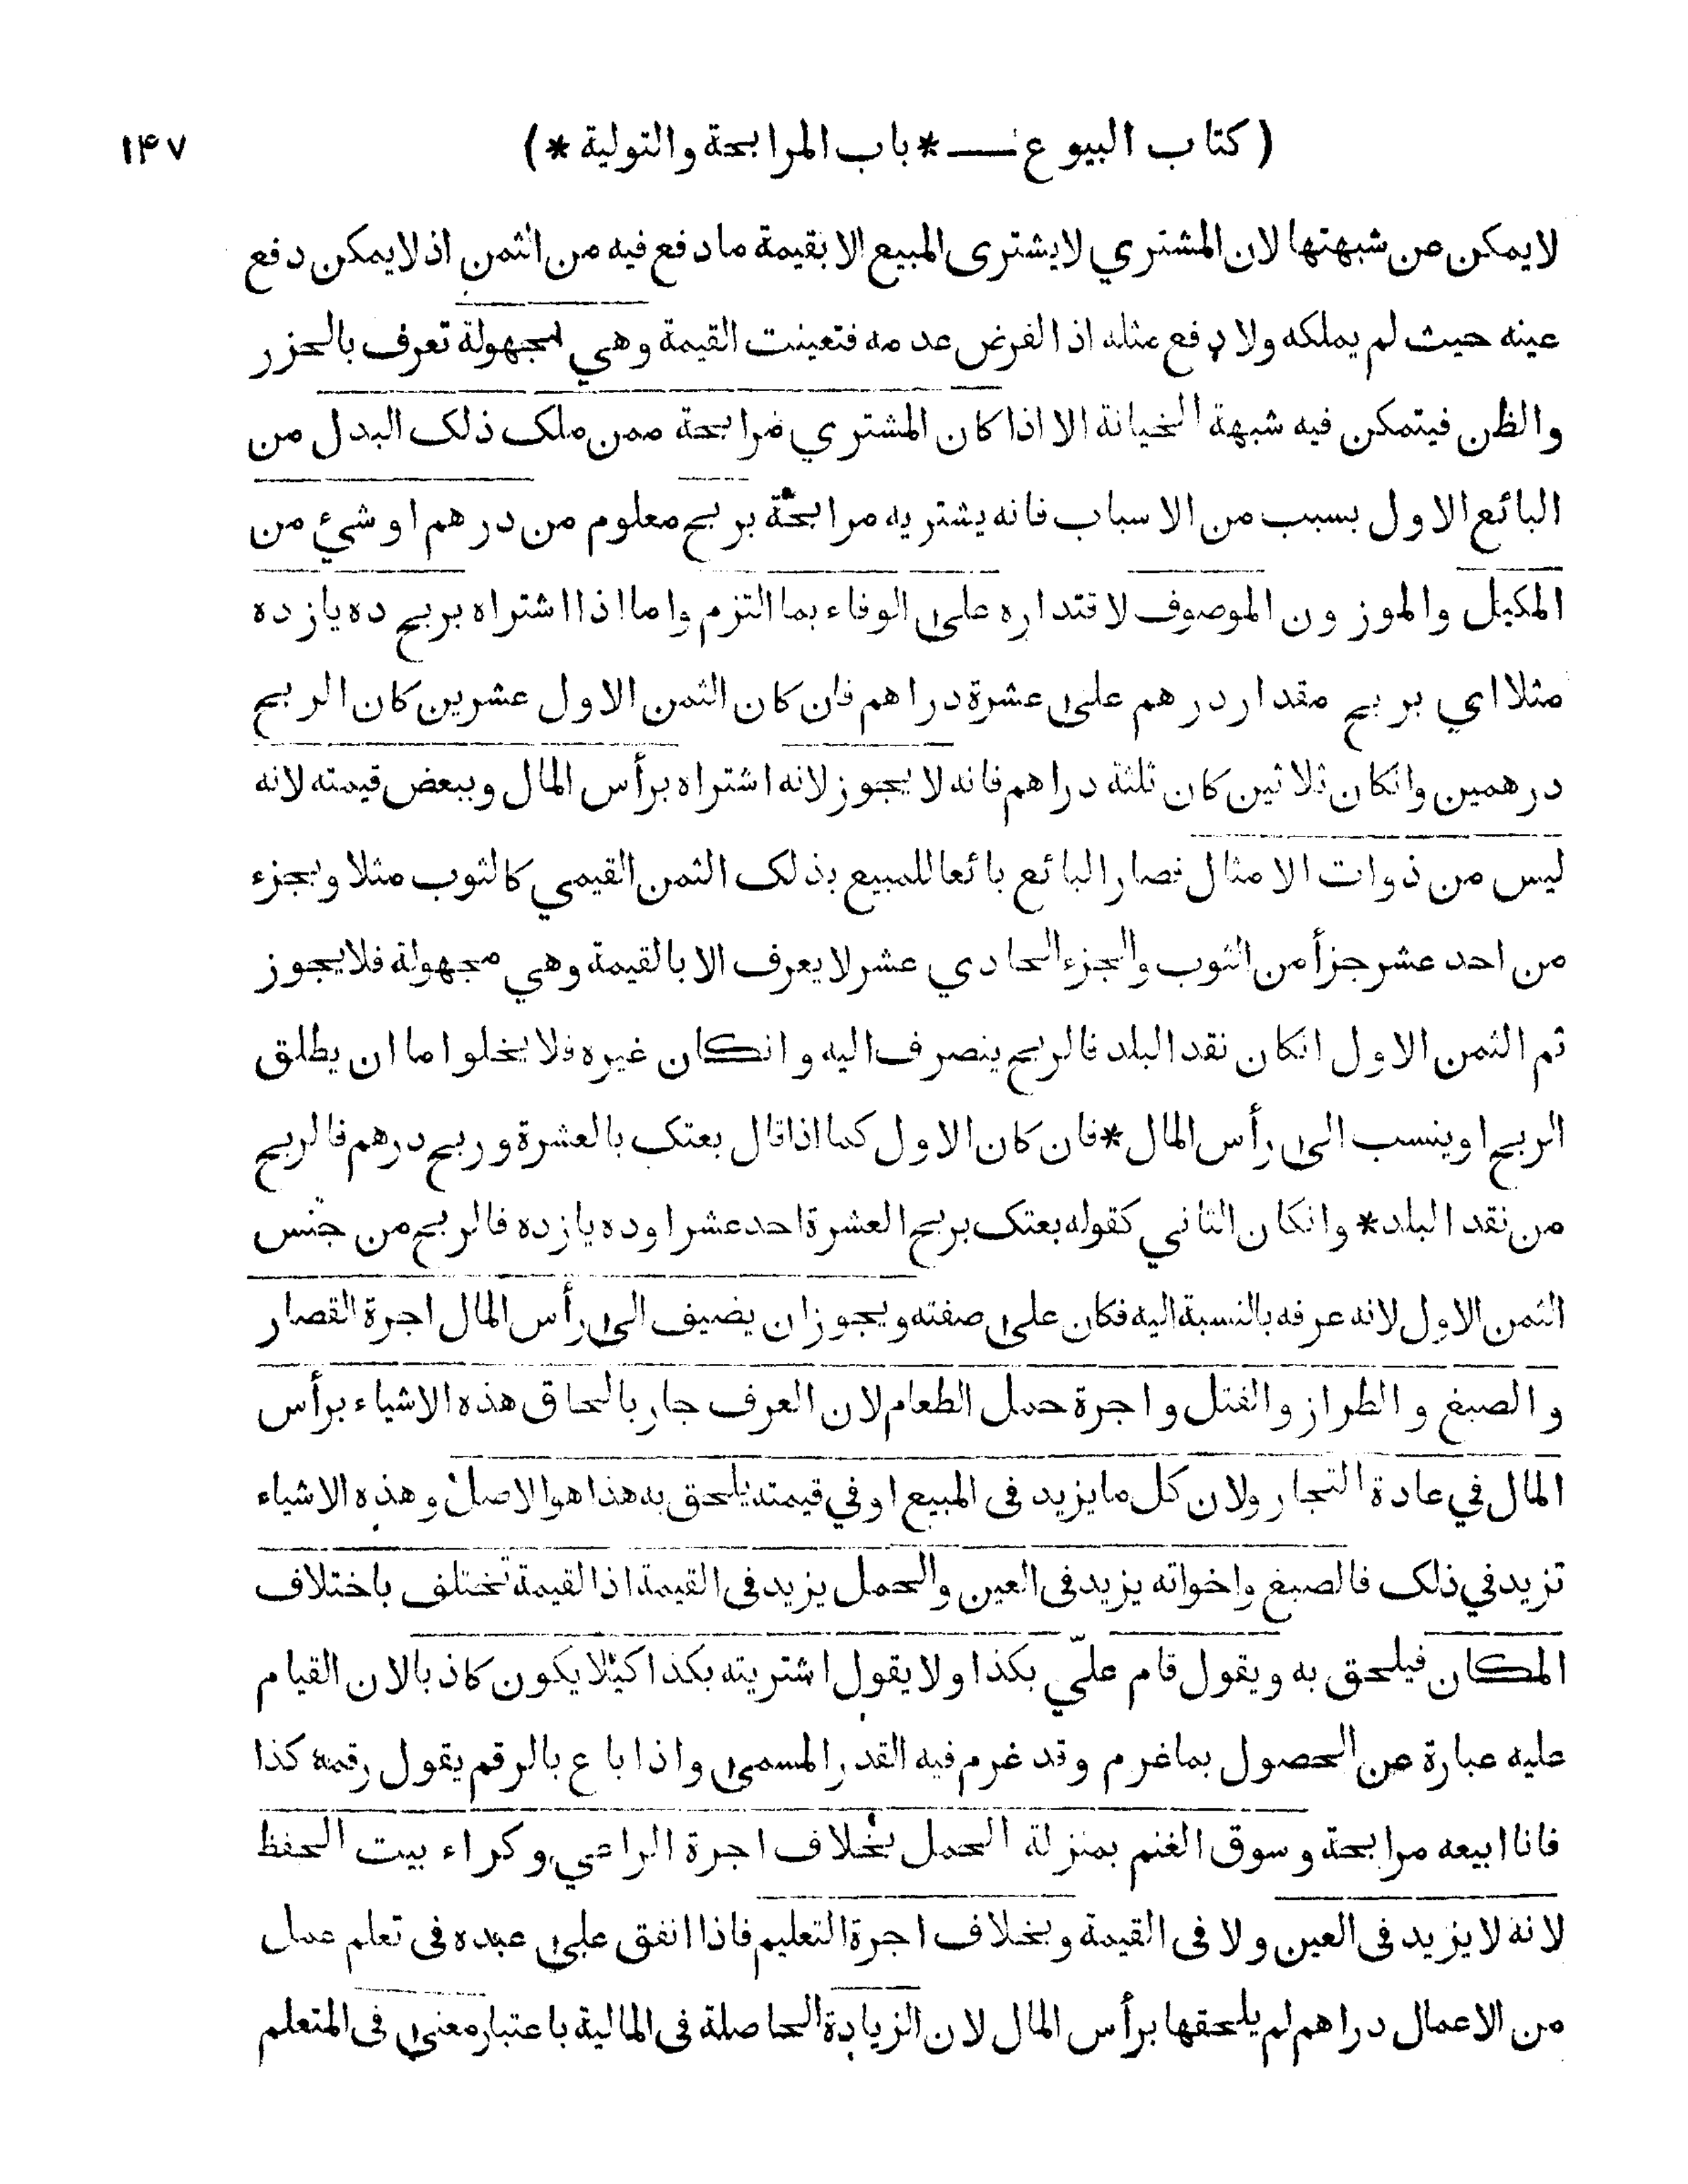 ( كتاب البيوع ـــ * باب المرابحة والتولية * ) ۱۴۷
لايمكن من شبهتها لان المشتري لايشترى المبيع الا بقيمة ما دفع فيه من الثمن اذ لايمكن دفع
عينه حيث لم يملكه ولا دفع مثله اذ الفرض عدمه فتعينت القيمة وهي مجهولة تعرف بالحزر
والظن فيتمكن فيه شبهة الخيانة الا اذا كان المشتري مرابحة ممن ملك ذلك البدل من
البائع الاول بسبب من الاسباب فانه يشتريه مرابحة بربح معلوم من درهم او شيء من
المكيل والموزون الموصوف لاقتداره على الوفاء بما التزم واما اذا اشتراه بربح ده يازده
مثلا اي بربح مقدار درهم على عشرة دراهم فان كان الثمن الاول عشرين كان الربح
درهمين وانكان ثلاثين كان ثلثة دراهم فانه لا يجوز لانه اشتراه برأس المال وببعض قيمته لانه
ليس من ذوات الامثال فصار البائع بائعا للمبيع بذلك الثمن القيمي كالثوب مثلا وبجزء
من احد عشر جزأ من الثوب والجزء الحادي عشر لا يعرف الا بالقيمة وهي مجهولة فلا يجوز
ثم الثمن الاول انكان نقد البلد فالربح ينصرف اليه وانكان غيره فلا يخلوا اما ان يطلق
الربح اوينسب الى رأس المال * فان كان الاول كما اذا قال بعتك بالعشرة وربح درهم فالربح
من نقد البلد * وانكان الثاني كقوله بعتك بربح العشرة احد عشر او ده يازده فالربح من جنس
الثمن الاول لانه عرفه بالنسبة اليه فكان على صفته ويجوز ان يضيف الى رأس المال اجرة القصار
والصبغ والطراز والفتل واجرة حمل الطعام لان العرف جار بالحاق هذه الاشياء برأس
المال في عادة التجار ولان كل ما يزيد فى المبيع اوفي قيمته يلحق به هذا هو الاصل وهذه الاشياء
تزيد في ذلك فالصبغ واخواته يزيد فى العين والحمل يزيد فى القيمة اذ القيمة تختلف باختلاف
المكان فيلحق به ويقول قام عليّ بكذا ولا يقول اشتريته بكذا كيلا يكون كاذبا لان القيام
عليه عبارة عن الحصول بما غرم وقد غرم فيه القدر المسمى واذا باع بالرقم يقول رقمه كذا
فانا ابيعه مرابحة وسوق الغنم بمنزلة الحمل بخلاف اجرة الراعي وكراء بيت الحفظ
لانه لا يزيد فى العين ولا فى القيمة وبخلاف اجرة التعليم فاذا انفق على عبده فى تعلم عمل
من الاعمال دراهم لم يلحقها برأس المال لان الزيادة الحاصلة فى المالية باعتبار معنى فى المتعلم